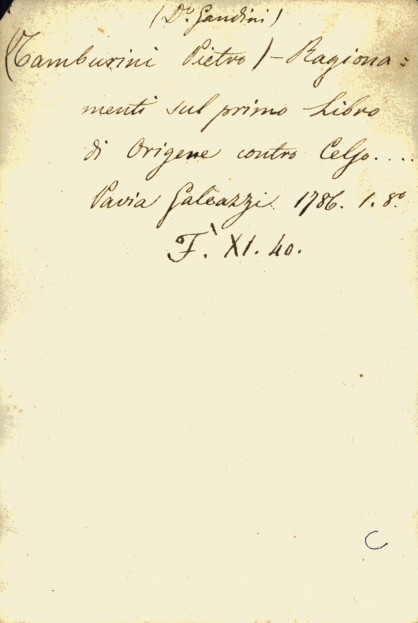 (D.º Gandini)
(Tamburini Pietro) - Ragiona=
menti sul primo Libro
di Origene contro Celso....
Pavia Galeazzi. 1786. 1. 8º
F. XI. 40.
C